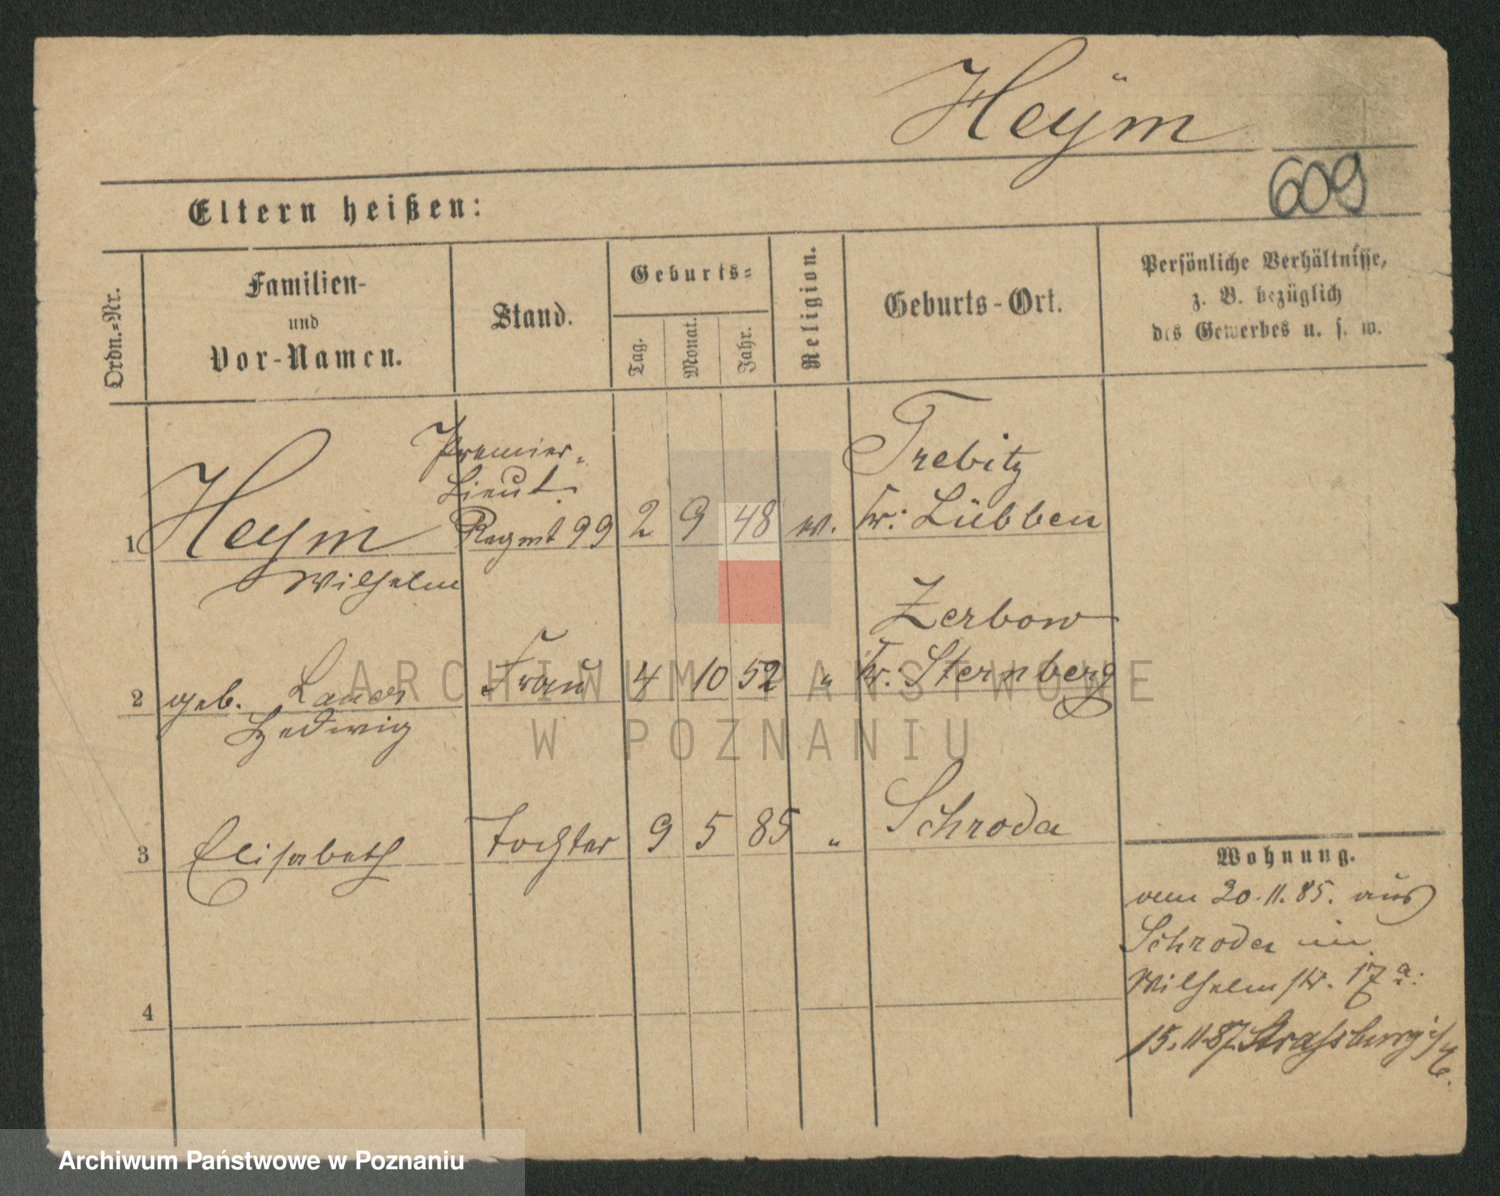 Heÿm
609
Eltern heißen:
Ordn.-Nr.
Familien-
und
Vor-Namen.
Stand.
Geburts-
Tag.
Monat.
Jahr.
Religion.
Geburts-Ort.
Persönliche Verhältnisse,
z. B. bezüglich
des Gewerbes u. s. w.
1 Heym
Wilhelm
Premier-
Lieut.
Regmt 99
2 9 48 ev.
Trebitz
Kr: Lübben
2 geb.
Hedwig
Frau 4 10 52 "
Zerbow
Kr. Sternberg
3 Elisabeth Tochter 9 5 85 " Schroda
4
Wohnung.
20.11.85. aus
Schroda in
Wilhelmstr. 17a:
15.11.87. Strassburg i/E.
ARCHIWUM PAŃSTWOWE
W POZNANIU
Archiwum Państwowe w Poznaniu